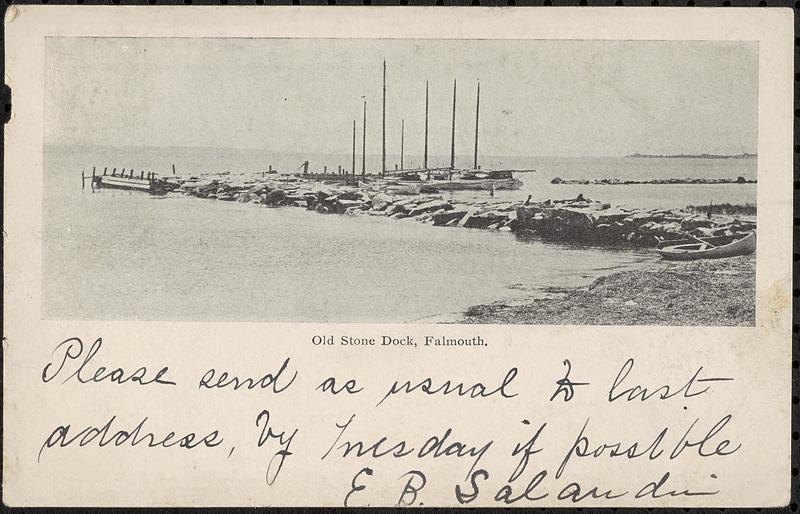 Old Stone Dock, Falmouth.
Please send as usual to last
address, by Tuesday if possible
E. B.